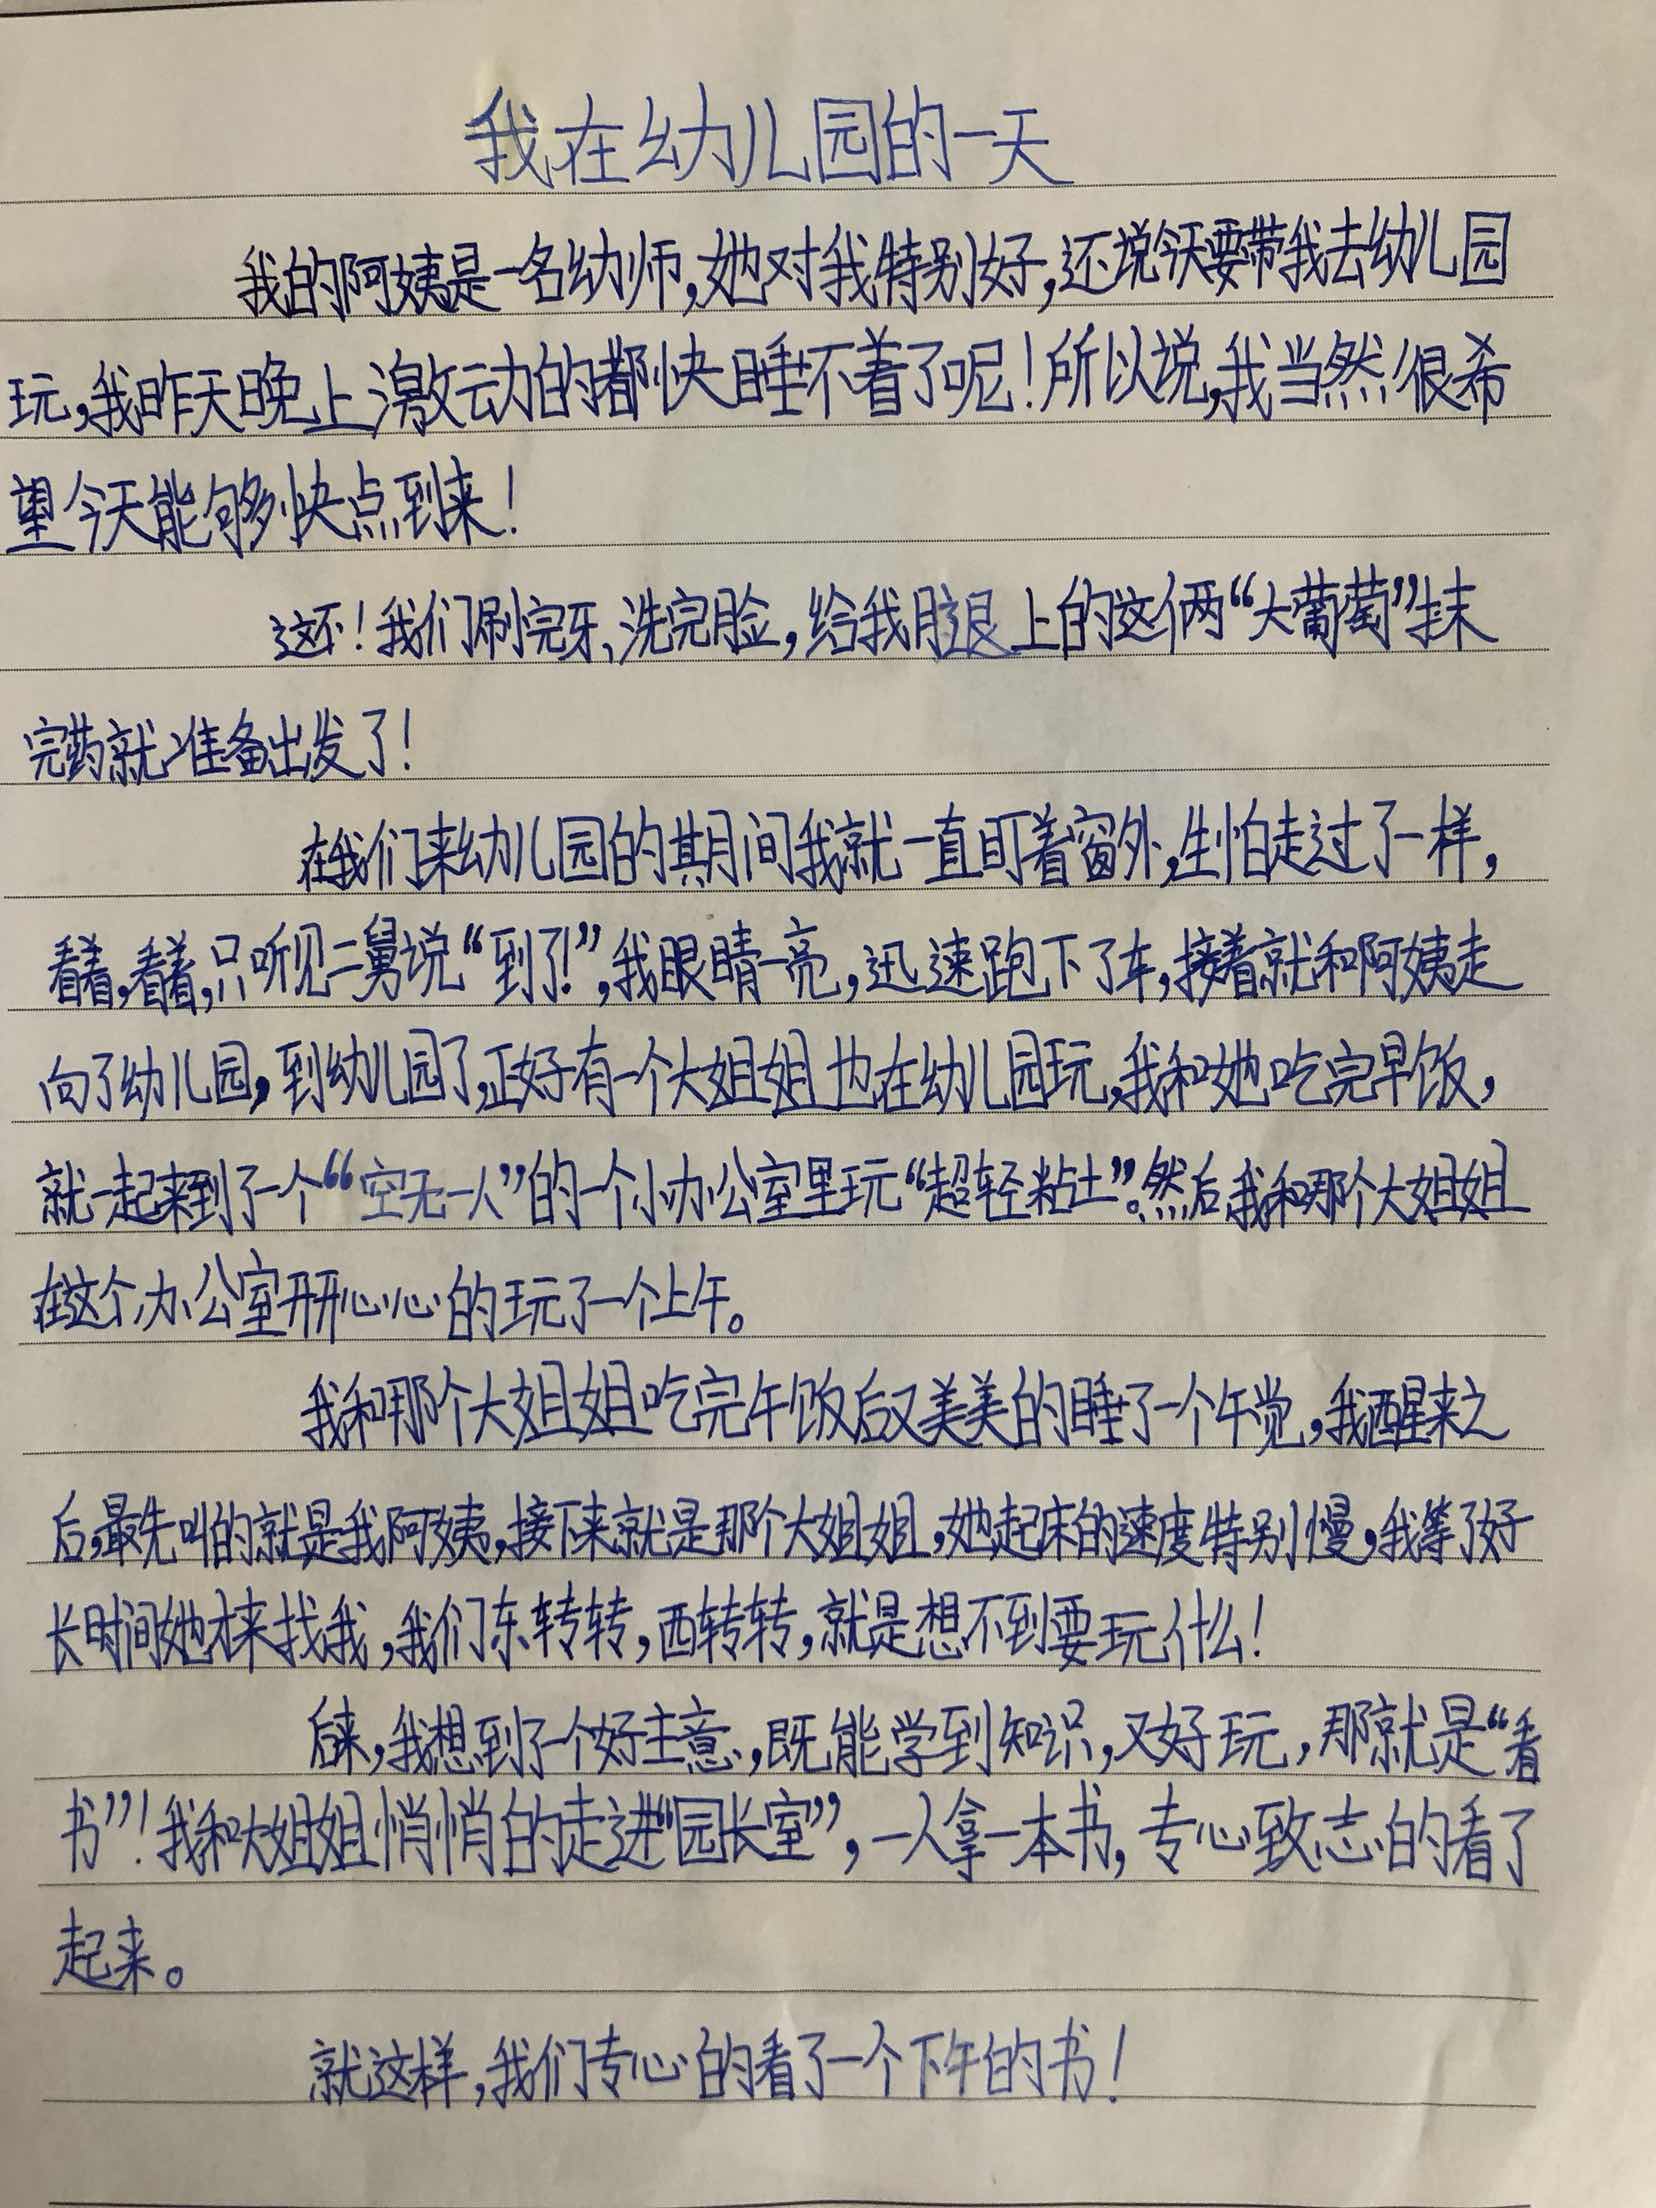 我在幼儿园的一天
我的阿姨是一名幼师,她对我特别好,还说今天要带我去幼儿园
玩,我昨天晚上激动的都快睡不着了呢!所以说,我当然很希
望今天能够快点到来!
这不!我们刷完牙、洗完脸,给我腿上的这俩“大葡萄”抹
完药就准备出发了!
在我们来幼儿园的期间我就一直盯着窗外,生怕走过了一样,
看着,看着,只听见二舅说“到了!”,我眼睛一亮,迅速跑下了车,接着就和阿姨走
向了幼儿园,到幼儿园了,正好有一个大姐姐也在幼儿园玩,我和她吃完早饭,
就一起来到了一个“空无一人”的一个小办公室里玩“超轻粘土”。然后我和那个大姐姐
在这个办公室开开心心的玩了一个上午。
我和那个大姐姐吃完午饭后又美美的睡了一个午觉,我醒来之
后,最先叫的就是我阿姨,接下来就是那个大姐姐,她起床的速度特别慢,我等了好
长时间她才来找我,我们东转转,西转转,就是想不到要玩什么!
后来,我想到了一个好主意,既能学到知识,又好玩,那就是“看
书”!我和大姐姐悄悄的走进“园长室”,一人拿一本书,专心致志的看了
起来。
就这样,我们专心的看了一个下午的书!